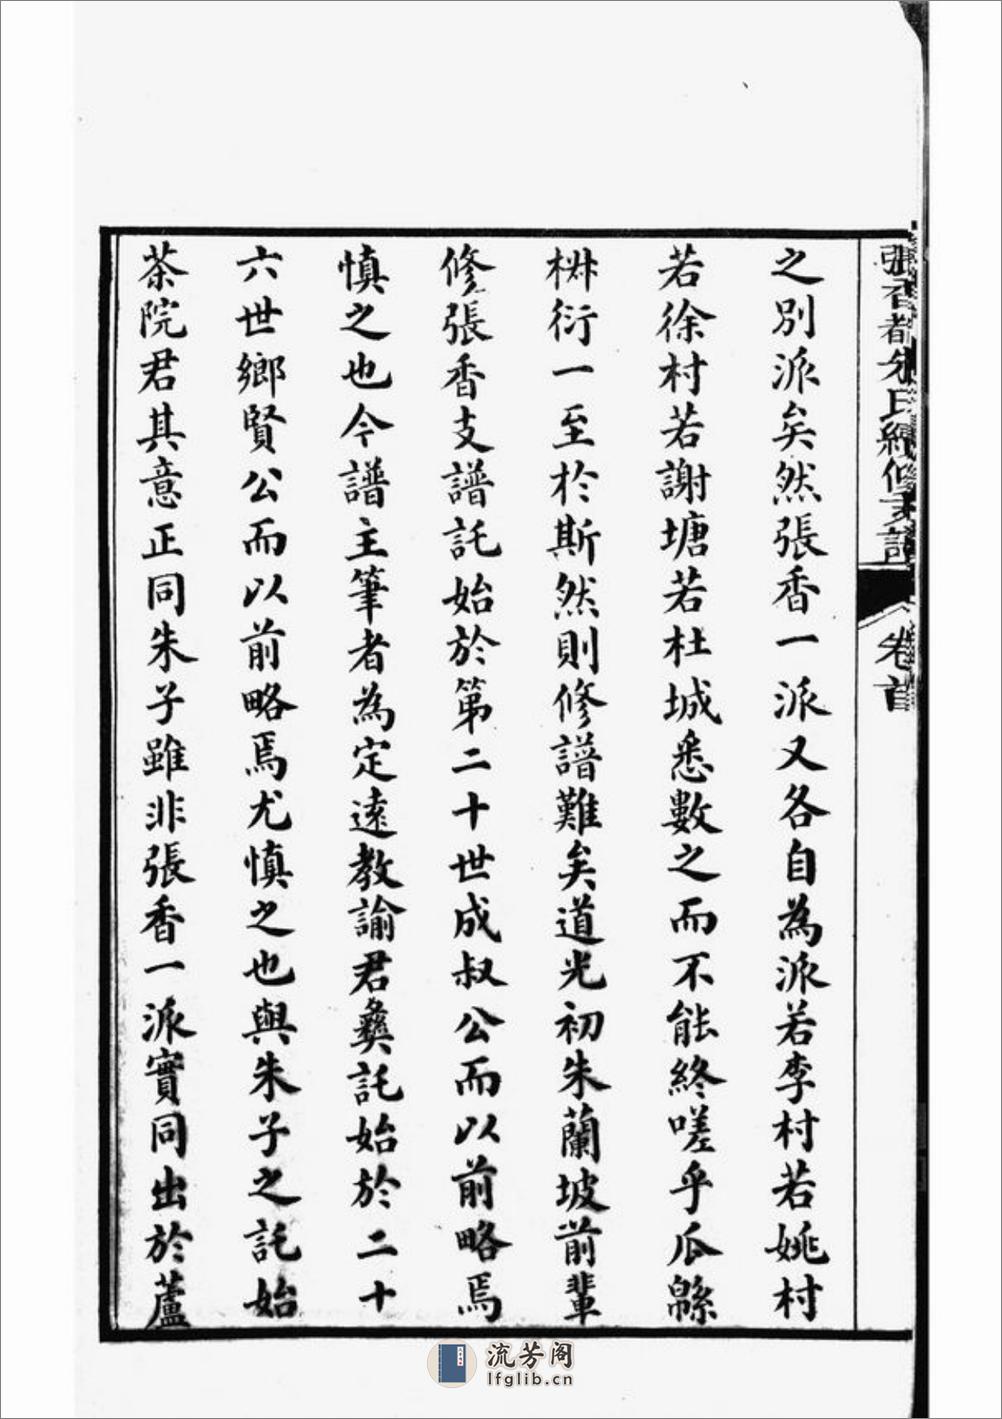 張香都朱氏續修支譜
卷首
之別派矣然張香一派又各自為派若李村若姚村
若徐村若謝塘若杜城悉數之而不能終嗟乎瓜緜
椒衍一至於斯然則修譜難矣道光初朱蘭坡前輩
修張香支譜託始於第二十世成叔公而以前略焉
慎之也今譜主筆者為定遠教諭君彝託始於二十
六世鄉賢公而以前略焉尤慎之也與朱子之託始
茶院君其意正同朱子雖非張香一派實同出於蘆
流芳阁
lfglib.cn